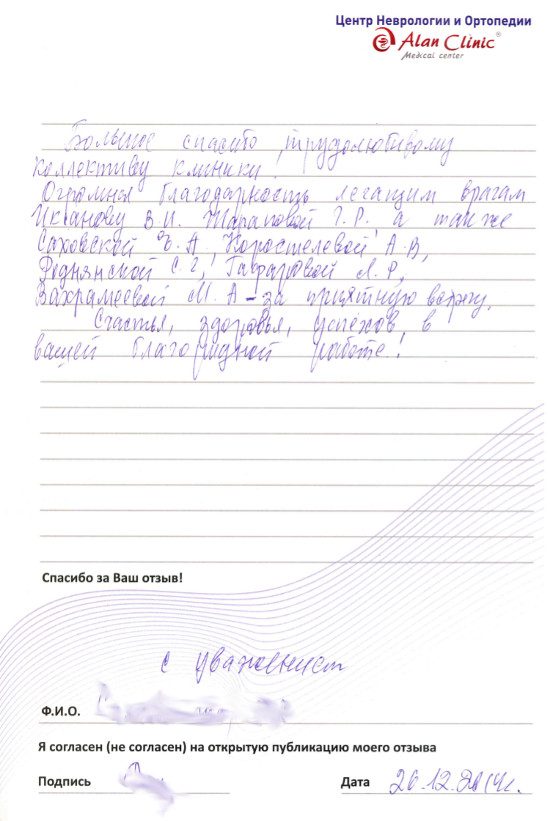 Центр Неврологии и Ортопедии
Alan Clinic®
Medical center
Большое спасибо трудолюбивому
коллективу клиники!
Огромная благодарность лечащим врачам
В. И. Шараповой Г. Р., а так же
Саховской Э. А, Коростелевой А. В,
С. Г, Л. Р,
Вахрамеевой М. А – за приятную встречу.
Счастья, здоровья, успехов, в
вашей благородной работе!
Спасибо за Ваш отзыв!
с уважением
Ф.И.О.
Я согласен (не согласен) на открытую публикацию моего отзыва
Подпись Дата 26.12.2014г.